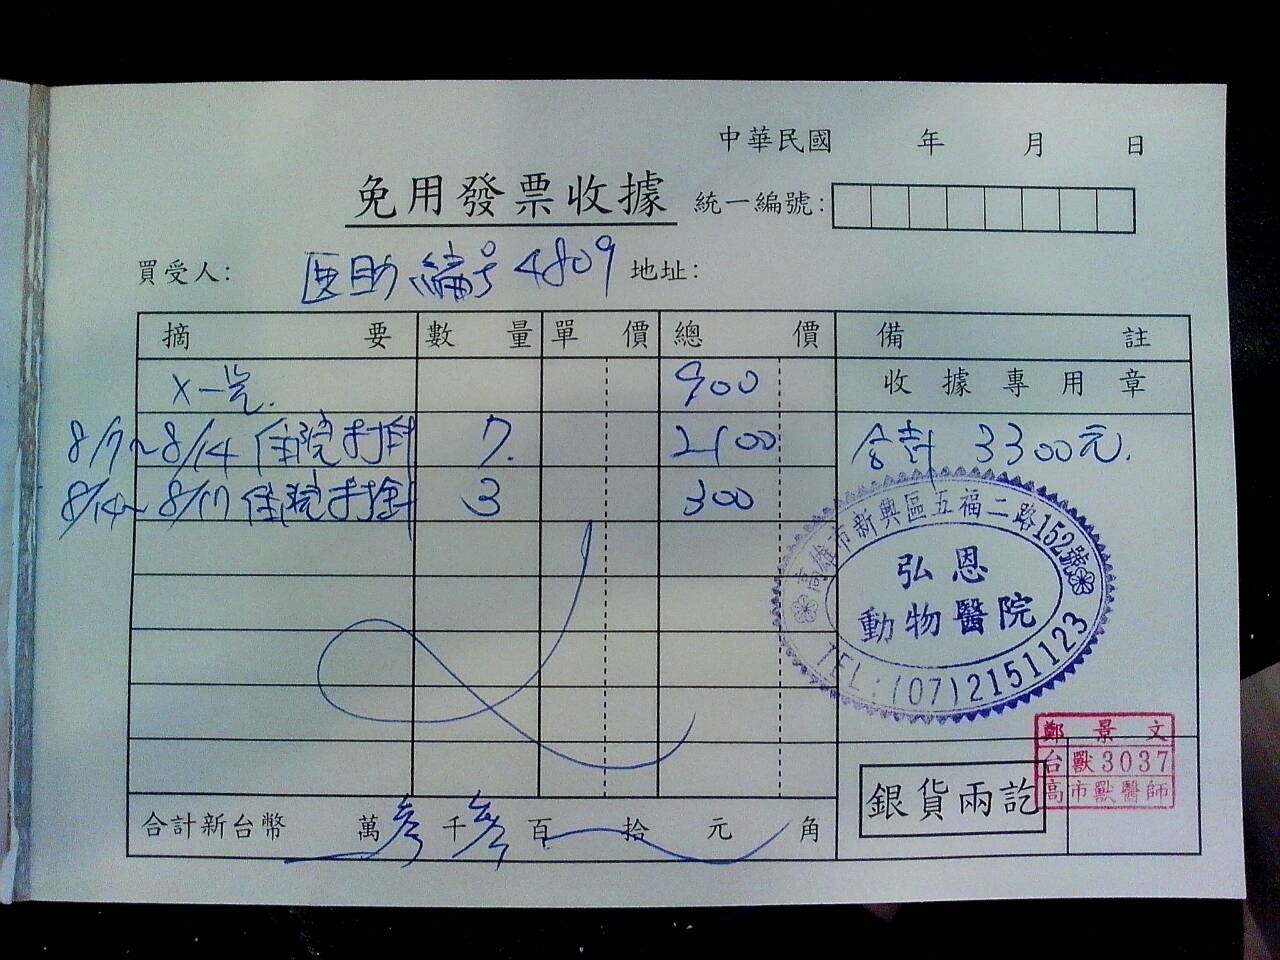 中華民國 年 月 日
免用發票收據 統一編號:
買受人: 医助 編号 4809 地址:
摘要 數量 單價 總價 備註
X一光. 900 收據專用章
8/7~8/14 住院打針 7. 2100 合計 3300元.
8/14~8/17 住院打針 3 300
高雄市新興區五福二路152號
弘恩
動物醫院
TEL:(07)2151123
鄭景文
台獸3037
高市獸醫師
銀貨兩訖
合計新台幣 萬參千參百 拾 元 角